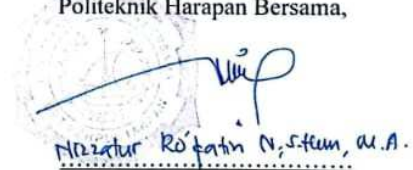 Politeknik Harapan Bersama,
Nizzatur Ro'fatin N, S.Hum, M.A.